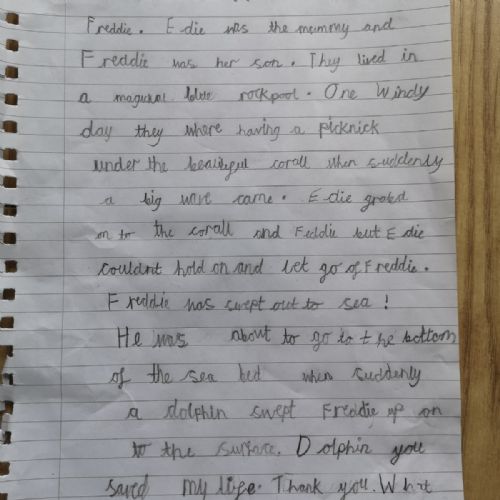 Freddie. Edie was the mummy and
Freddie was her son. They lived in
a magukal blue rockpool. One Windy
day they where having a picknick
under the beautiful corall when suddenly
a big wave came. Edie grabed
on to the corall and Feddie but Edie
couldnt hold on and let go of Freddie.
Freddie was swept out to sea!
He was about to go to the bottom
of the sea bed when suddenly
a dolphin swept Freddie up on
to the surface. Dolphin you
saved my life. Thank you. What